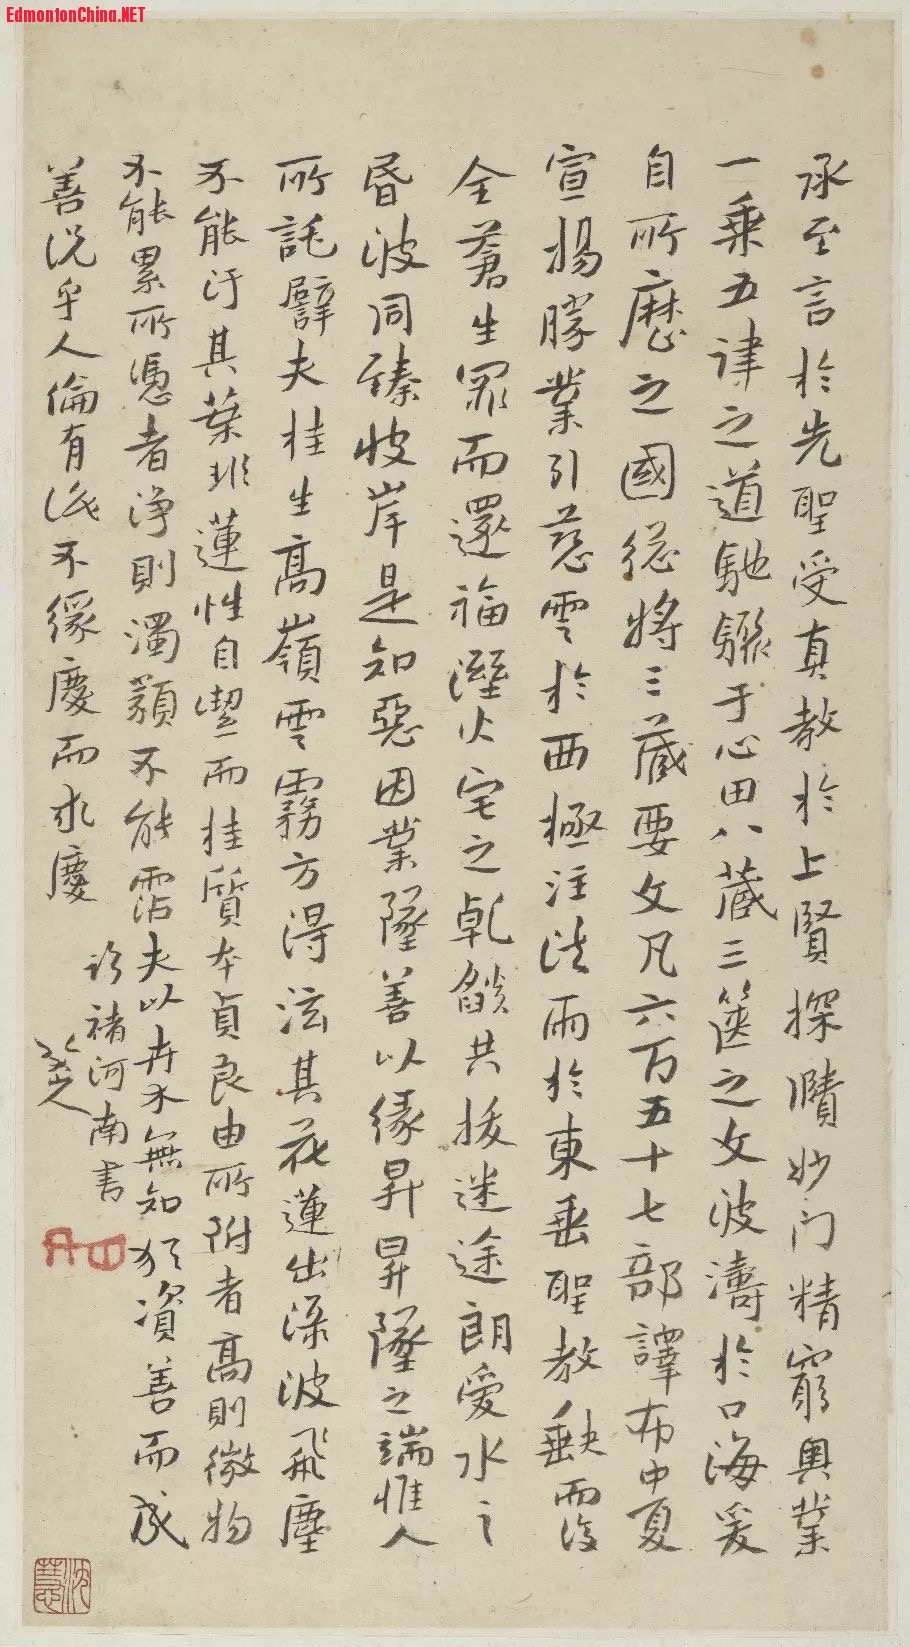 EdmontonChina.NET
承至言於先聖受真教於上賢探賾妙門精窮奧業
一乘五律之道馳驟于心田八藏三篋之文波濤於口海爰
自所歷之國總將三藏要文凡六百五十七部譯布中夏
宣揚勝業引慈雲於西極注法雨於東垂聖教缺而復
全蒼生罪而還福溼火宅之乹燄共拔迷途朗愛水之
昏波同臻彼岸是知惡因業墜善以緣昇昇墜之端惟人
所託譬夫桂生高嶺雲霧方得泫其花蓮出淥波飛塵
不能汙其葉非蓮性自潔而桂質本貞良由所附者高則微物
不能累所憑者淨則濁類不能霑夫以卉木無知猶資善而成
善況乎人倫有識不緣慶而求慶
臨褚河南書
八大山人